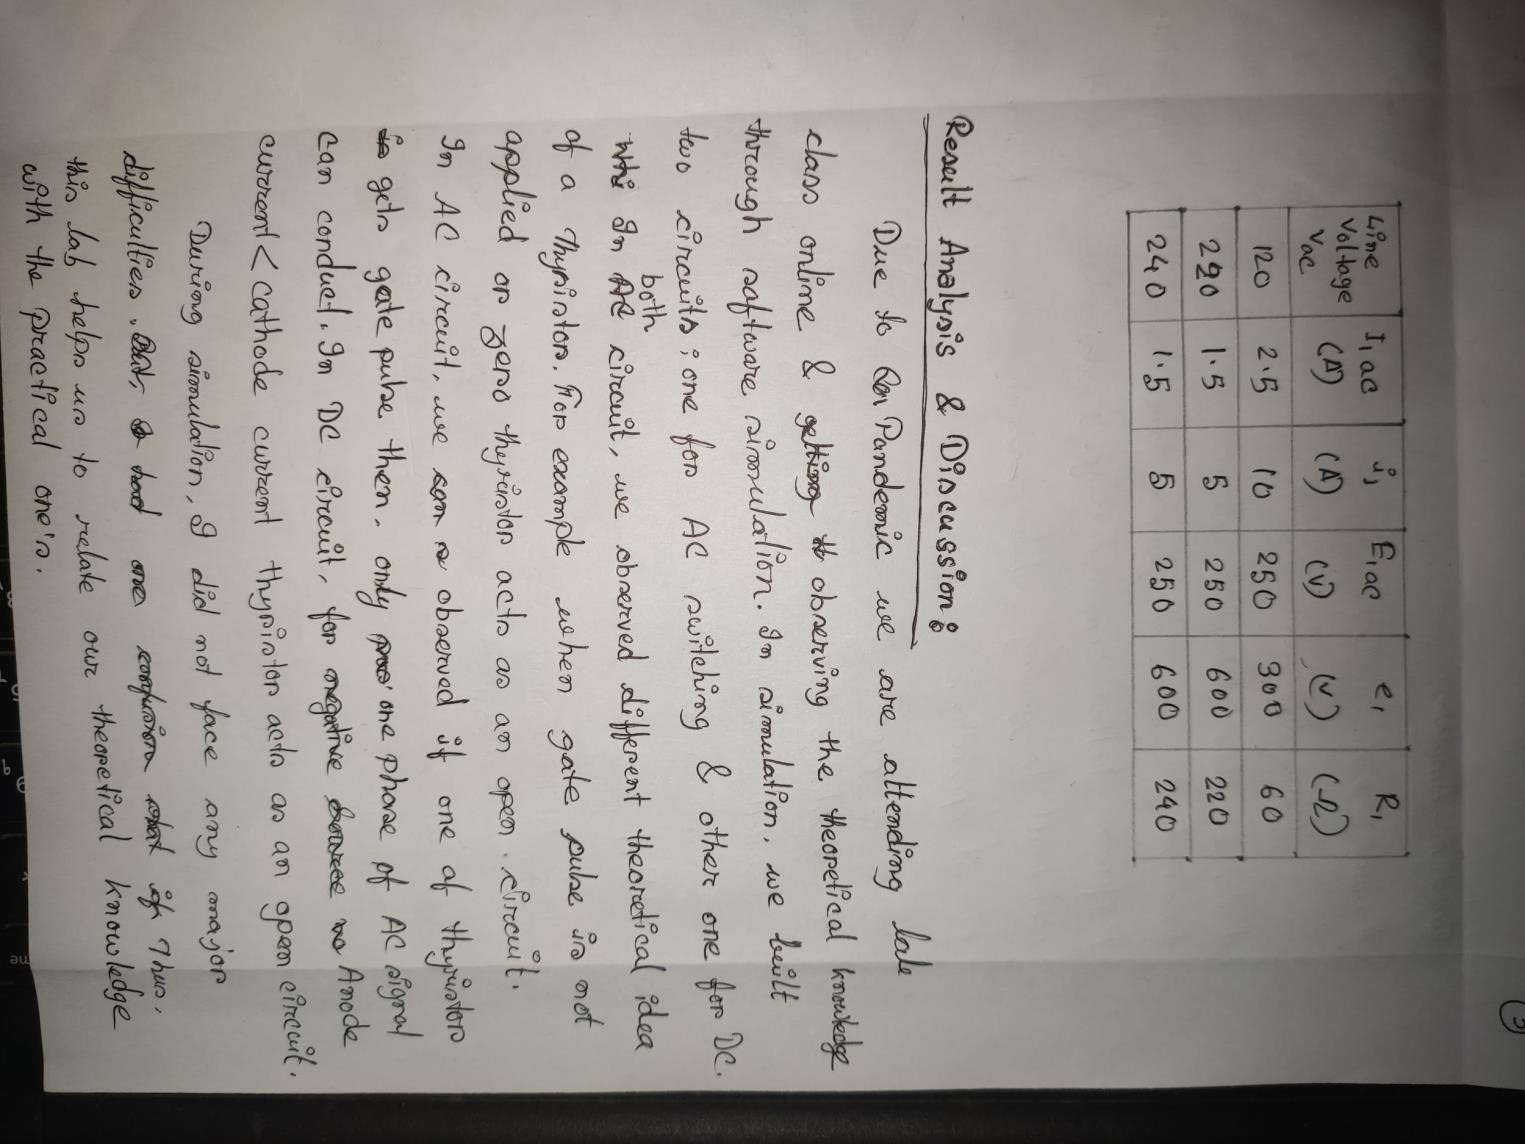 Line Voltage Vac | I1 ac (A) | i1 (A) | E1 ac (V) | e1 (V) | R1 (Ω)
120 | 2.5 | 10 | 250 | 300 | 60
220 | 1.5 | 5 | 250 | 600 | 220
240 | 1.5 | 5 | 250 | 600 | 240
Result Analysis & Discussion:
Due to Pandemic we are attending lab
class online & observing the theoretical knowledge
through software simulation. In simulation, we built
two circuits; one for AC switching & other one for DC.
In both circuit, we observed different theoretical idea
of a Thyristor. For example when gate pulse is not
applied or zero thyristor acts as an open circuit.
In AC circuit, we observed if one of thyristor
gets gate pulse then, only one phase of AC signal
can conduct. In DC circuit, for Anode
current < cathode current thyristor acts as an open circuit.
During simulation, I did not face any major
difficulties. Thus,
this lab helps us to relate our theoretical knowledge
with the practical one's.